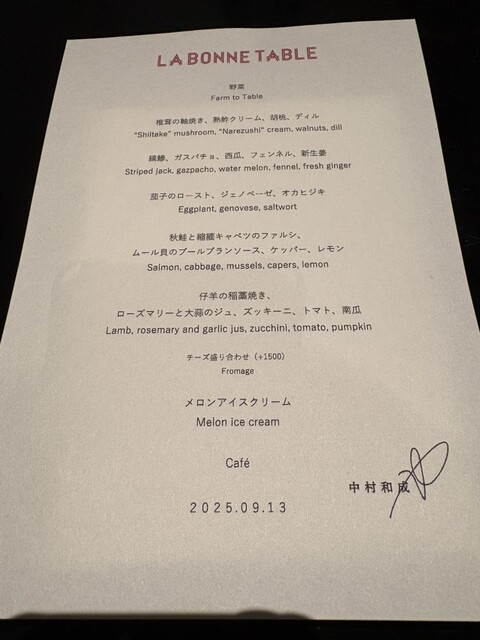 LA BONNE TABLE
野菜
Farm to Table
椎茸の軸焼き、熟鮓クリーム、胡桃、ディル
"Shiitake" mushroom, "Narezushi" cream, walnuts, dill
縞鯵、ガスパチョ、西瓜、フェンネル、新生姜
Striped jack, gazpacho, water melon, fennel, fresh ginger
茄子のロースト、ジェノベーゼ、オカヒジキ
Eggplant, genovese, saltwort
秋鮭と縮緬キャベツのファルシ、
ムール貝のブールブランソース、ケッパー、レモン
Salmon, cabbage, mussels, capers, lemon
仔羊の稲藁焼き、
ローズマリーと大蒜のジュ、ズッキーニ、トマト、南瓜
Lamb, rosemary and garlic jus, zucchini, tomato, pumpkin
チーズ盛り合わせ（+1500）
Fromage
メロンアイスクリーム
Melon ice cream
Café
中村和成
2025.09.13